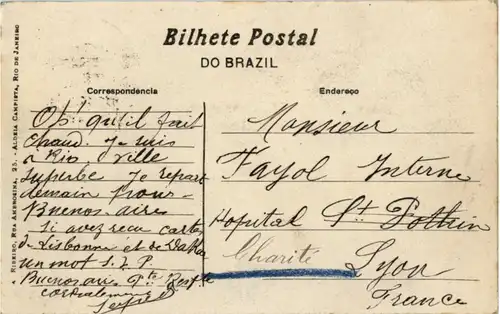 Bilhete Postal
DO BRAZIL
Correspondencia
Oh! qu'il fait
chaud. Je suis
a Rio, ville
superbe Je repars
demain pour
Buenos-aires
Si avez reçu cartes
de Lisbonne et de Dakar
un mot S.V.P.
Buenos aires Pte Restte
cordialement
Endereço
Monsieur
Fayol Interne
Hopital St Pothin
Charité
Lyon
France
A. RIBEIRO, RUA AMBROSINA, 25. - ALDEIA CAMPISTA, RIO DE JANEIRO